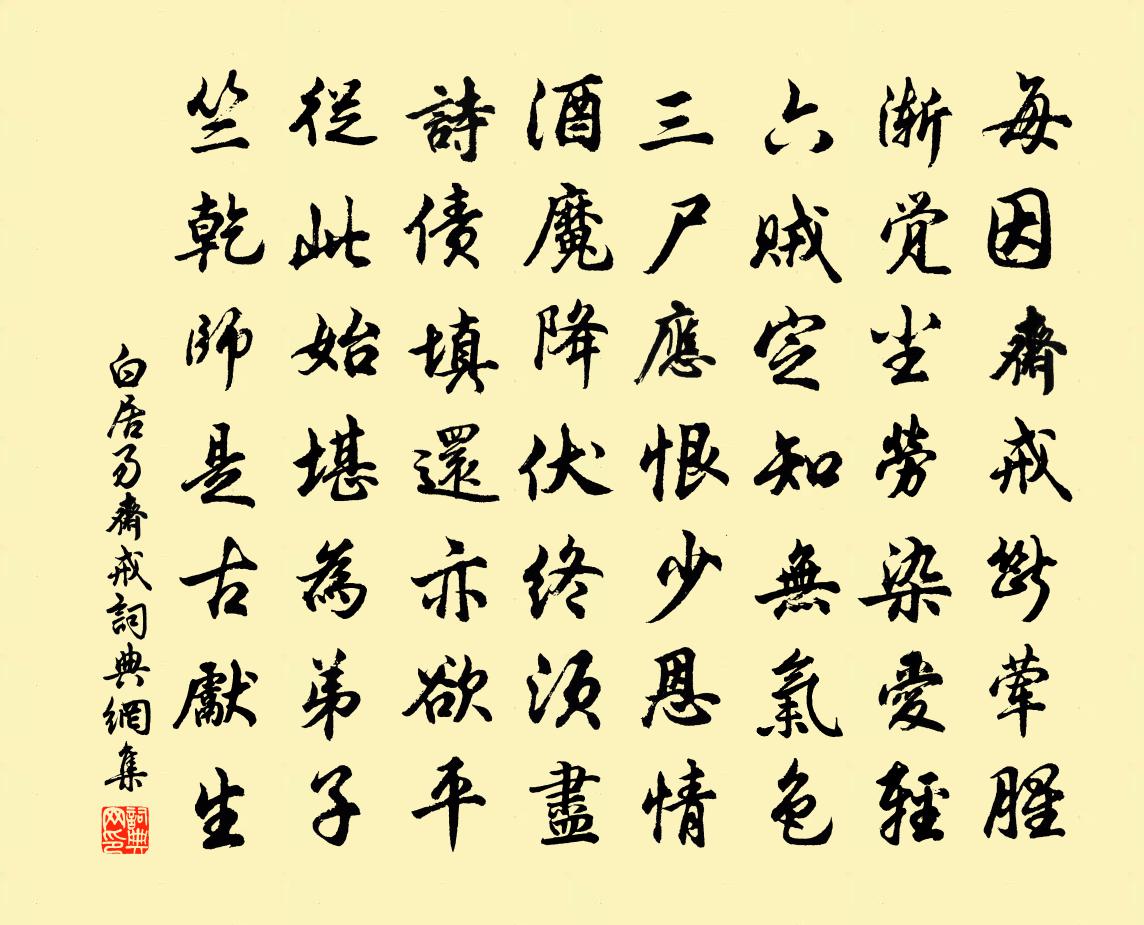 每因齋戒斷葷腥
漸覺尘勞染愛輕
六賊定知無氣色
三尸應恨少恩情
酒魔降伏終須盡
詩債填還亦欲平
從此始堪為弟子
竺乾師是古獻生
白居易齋戒詞典網集
詞典网印